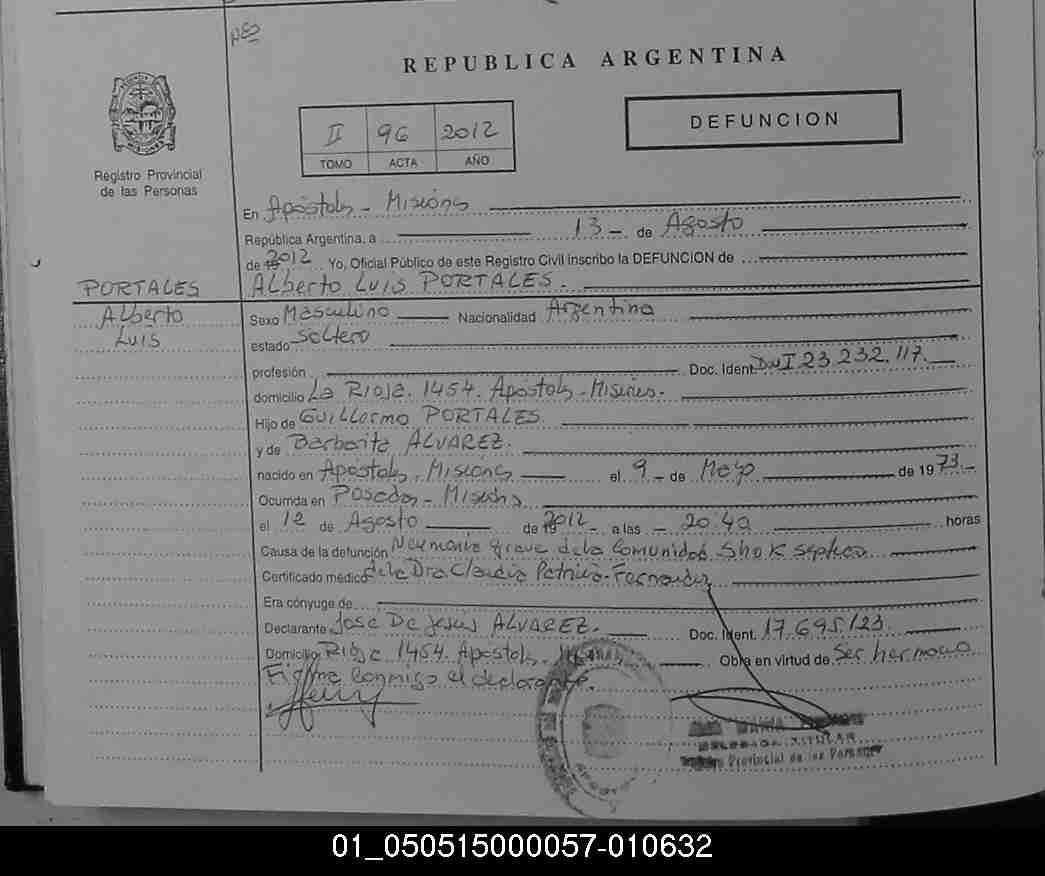 REPUBLICA ARGENTINA
DEFUNCION
II 96 2012
TOMO ACTA AÑO
Registro Provincial
de las Personas
En Apóstoles - Misiones
República Argentina, a 13 - de Agosto
de 2012 Yo, Oficial Público de este Registro Civil inscribo la DEFUNCION de
PORTALES
Alberto
Luis
Alberto Luis PORTALES.
Sexo Masculino Nacionalidad Argentina
estado Soltero
profesión Doc. Ident. DNI 23.232.117.
domicilio La Rioja. 1454. Apóstoles - Misiones.
Hijo de Guillermo PORTALES.
y de Barbarita ALVAREZ.
nacido en Apóstoles, Misiones el 9 - de Mayo de 1973.-
Ocurrida en Posadas - Misiones
el 12 de Agosto de 2012 - a las - 20:40 horas
Causa de la defunción Neumonía grave de la Comunidad. Shok septico
Certificado médico de la Dra Claudia Patricia Fernandez
Era cónyuge de
Declarante Jose De Jesús ALVAREZ. Doc. Ident. 17.695123
Domicilio Rioja 1454. Apóstoles - Obra en virtud de Ser hermano
Firma conmigo el declarante.
MARIA
DELEGADA TITULAR
Registro Provincial de las Personas
01_050515000057-010632